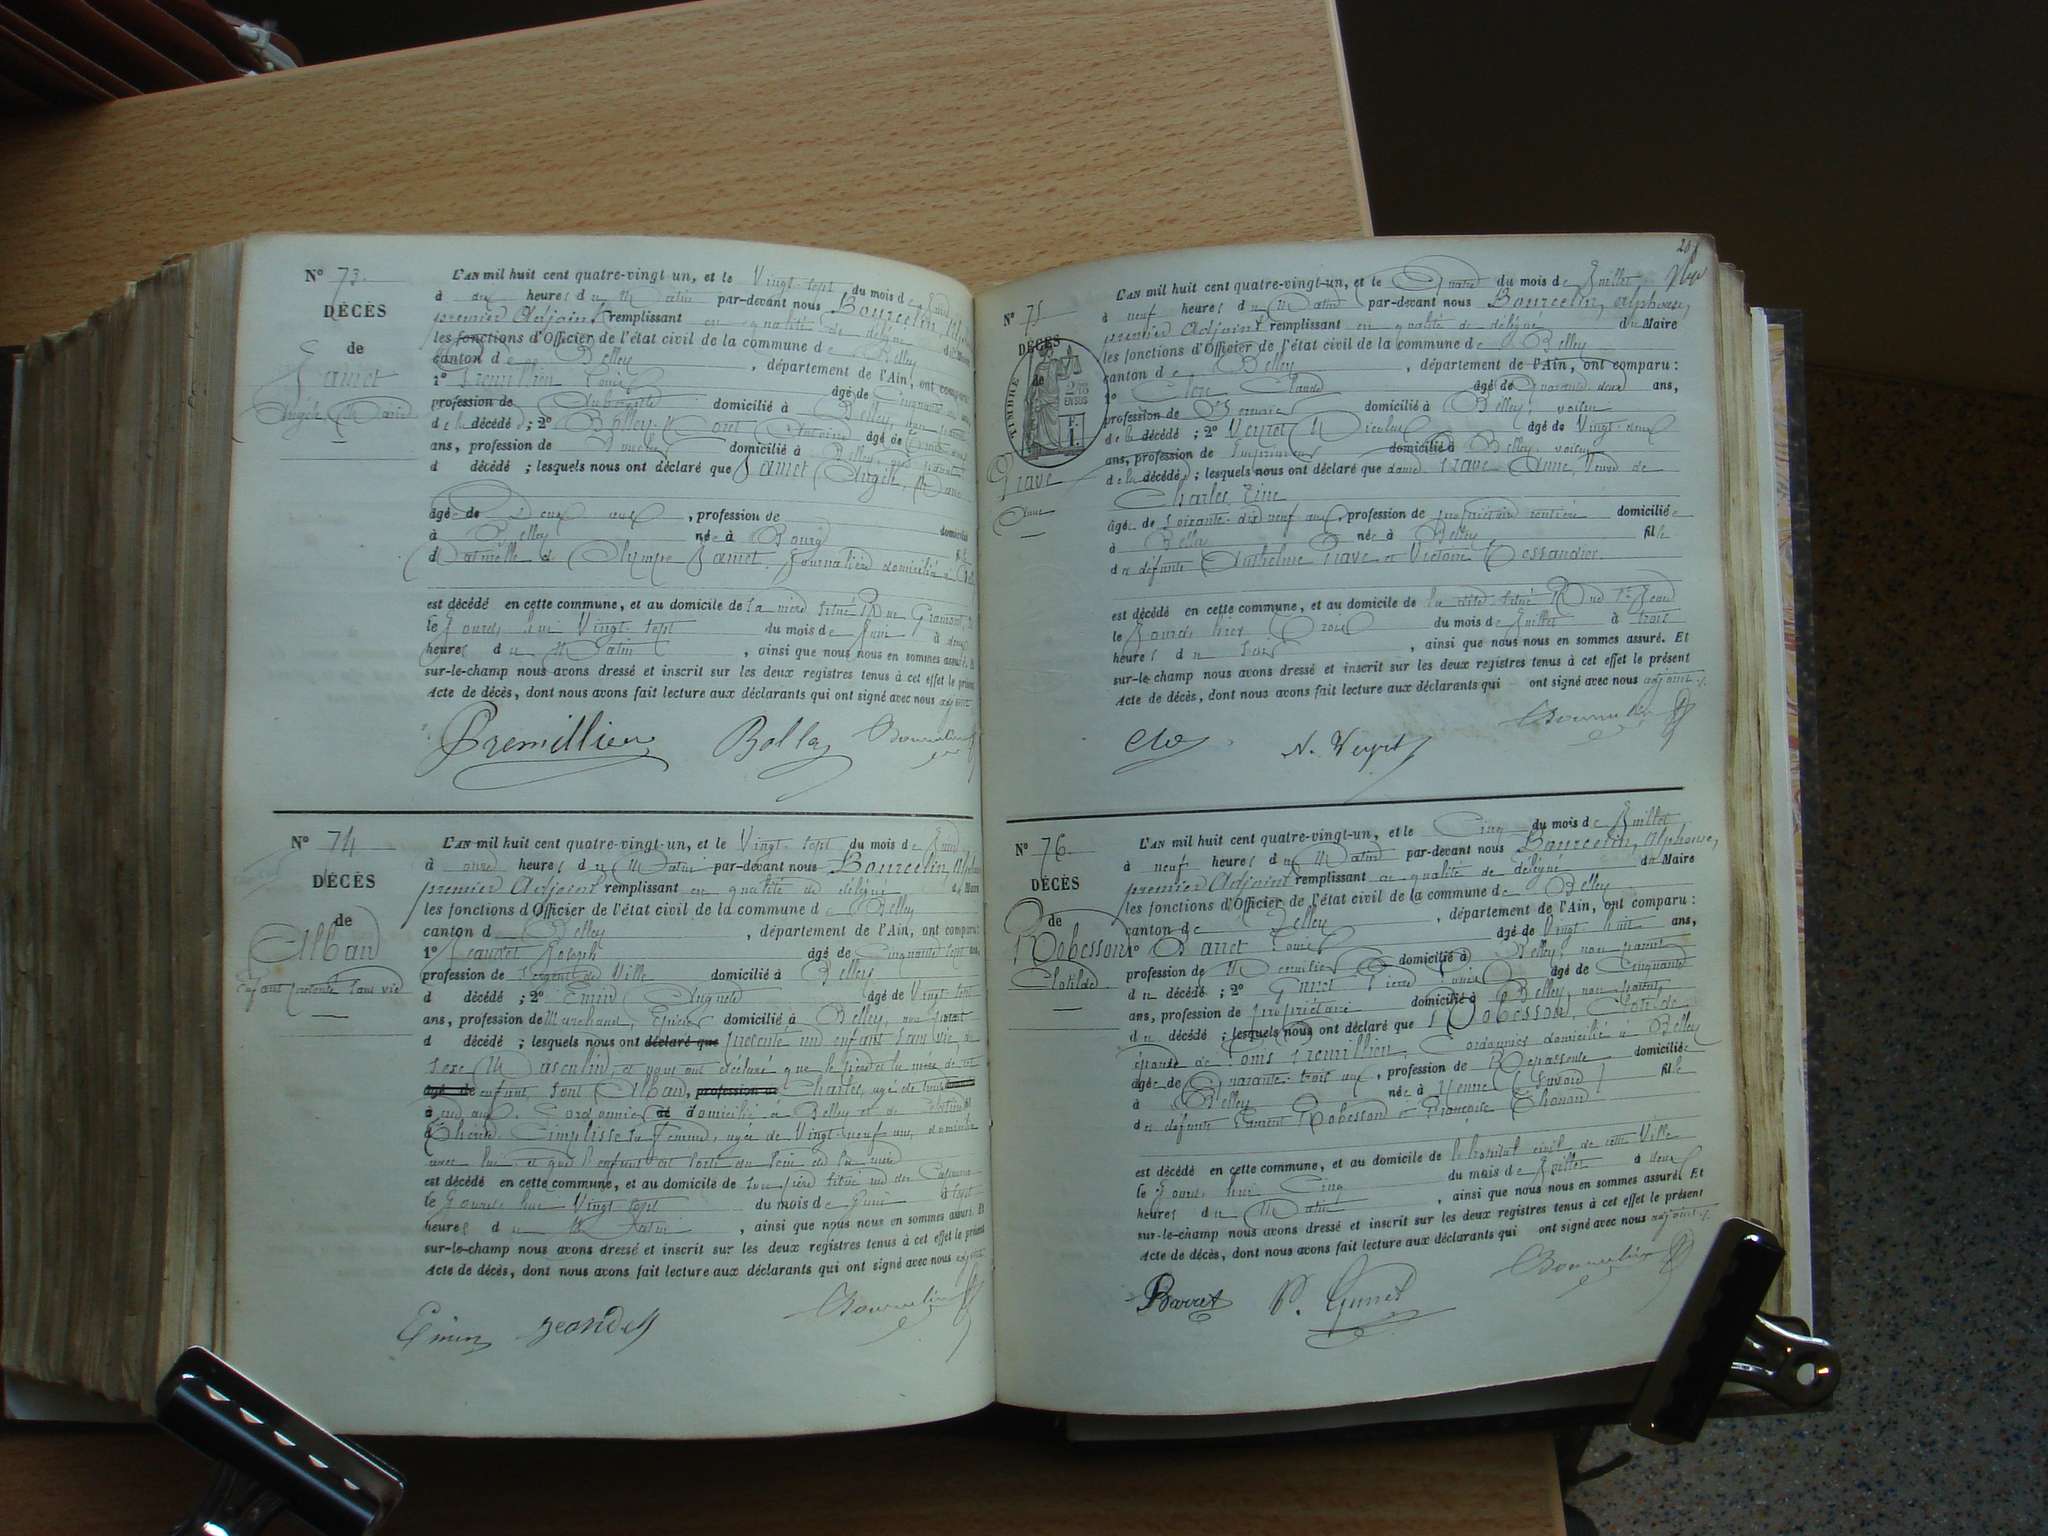 N° 73.
DÉCÈS
de
Jamet
Angèle Marie
L'AN mil huit cent quatre-vingt un, et le Vingt-sept du mois de Juin
à heures du Matin par-devant nous Bourcelin,
premier Adjoint remplissant en qualité de délégué du Maire
les fonctions d'Officier de l'état civil de la commune de Belley
canton de Belley, département de l'Ain, ont comparu:
1° Premillien Louis âgé de Cinquante ans
profession de Aubergiste domicilié à Belley, non parent
de la décédée; 2° Bolley Antoine âgé de
ans, profession de domicilié à Belley, non parent
d décédé; lesquels nous ont déclaré que Jamet Angèle, Marie
âgée de Deux ans, profession de domicilié
à Belley née à Bourg fille
naturelle de Olympe Jamet, Journalière domiciliée à
est décédé en cette commune, et au domicile de sa mère situé Rue
le Jourd'hui Vingt-sept du mois de Juin à
heures du Matin, ainsi que nous nous en sommes assuré. Et
sur-le-champ nous avons dressé et inscrit sur les deux registres tenus à cet effet le présent
Acte de décès, dont nous avons fait lecture aux déclarants qui ont signé avec nous adjoint
Premillien Bolley Bourcelin
N° 74
DÉCÈS
de
Alban
Enfant présenté sans vie
L'AN mil huit cent quatre-vingt-un, et le Vingt-sept du mois de Juin
à onze heures du Matin par-devant nous Bourcelin, Alphonse
premier Adjoint remplissant en qualité de délégué du Maire
les fonctions d'Officier de l'état civil de la commune de Belley
canton de Belley, département de l'Ain, ont comparu:
1° Jeandet Joseph âgé de Cinquante sept ans,
profession de Sergent de Ville domicilié à Belley
d décédé; 2° Emin Auguste âgé de Vingt-sept
ans, profession de Marchand, Epicier domicilié à Belley, non parent
d décédé; lesquels nous ont déclaré que présenté un enfant sans vie, du
sexe Masculin, et nous ont déclaré que le père et la mère de cet
âgé de enfant, sont Alban, profession de Charles, âgé de
ans, Cordonnier domicilié à Belley et de
Cimplisse sa femme, âgée de Vingt-neuf ans, domiciliée
avec lui et que l'enfant est sorti du sein de sa mère
est décédé en cette commune, et au domicile de son père situé rue des
le Jourd'hui Vingt sept du mois de Juin à sept
heures du Matin, ainsi que nous nous en sommes assuré. Et
sur-le-champ nous avons dressé et inscrit sur les deux registres tenus à cet effet le présent
Acte de décès, dont nous avons fait lecture aux déclarants qui ont signé avec nous adjoint
Emin Jeandet Bourcelin
N° 75
DÉCÈS
de
TIMBRE
2/10
EN SUS
F.
1.
Grave
Anne
L'AN mil huit cent quatre-vingt-un, et le Quatre du mois de Juillet
à neuf heures du Matin par-devant nous Bourcelin, Alphonse,
premier Adjoint remplissant en qualité de délégué du Maire
les fonctions d'Officier de l'état civil de la commune de Belley
canton de Belley, département de l'Ain, ont comparu:
1° Claude âgé de Quarante deux ans,
profession de domicilié à Belley, voisin
de la décédée; 2° Veyret Nicolas âgé de Vingt-deux
ans, profession de Imprimeur domicilié à Belley, voisin
de la décédée; lesquels nous ont déclaré que dame Grave Anne, Veuve de
Charles
âgée de Soixante-dix neuf ans, profession de propriétaire rentière domiciliée
à Belley née à Belley fille
de défunts Anthelme Grave et Victoire
est décédé en cette commune, et au domicile de
le Jourd'hier Trois du mois de Juillet à trois
heures du Soir, ainsi que nous nous en sommes assuré. Et
sur-le-champ nous avons dressé et inscrit sur les deux registres tenus à cet effet le présent
Acte de décès, dont nous avons fait lecture aux déclarants qui ont signé avec nous adjoint
N. Veyret Bourcelin
N° 76.
DÉCÈS
de
Robesson
Clotilde
L'AN mil huit cent quatre-vingt-un, et le Cinq du mois de Juillet,
à neuf heures du Matin par-devant nous Bourcelin, Alphonse,
premier Adjoint remplissant en qualité de délégué du Maire
les fonctions d'Officier de l'état civil de la commune de Belley
canton de Belley, département de l'Ain, ont comparu:
1° Barret Louis âgé de Vingt-huit ans,
profession de domicilié à Belley, non parent
d décédé; 2° Gunet Pierre Louis âgé de Cinquante
ans, profession de propriétaire domicilié à Belley, non parent
d décédé; lesquels nous ont déclaré que Robesson, Clotilde
épouse de Louis Premillien, Cordonnier domicilié à Belley
âgée de Quarante-trois ans, profession de Repasseuse domiciliée
à Belley née à Yenne (Savoie) fille
de défunts Laurent Robesson et Françoise
est décédé en cette commune, et au domicile de l'hospital civil de cette Ville
le Jourd'hui Cinq du mois de Juillet à deux
heures du Matin, ainsi que nous nous en sommes assuré. Et
sur-le-champ nous avons dressé et inscrit sur les deux registres tenus à cet effet le présent
Acte de décès, dont nous avons fait lecture aux déclarants qui ont signé avec nous adjoint
Barret P. Gunet Bourcelin